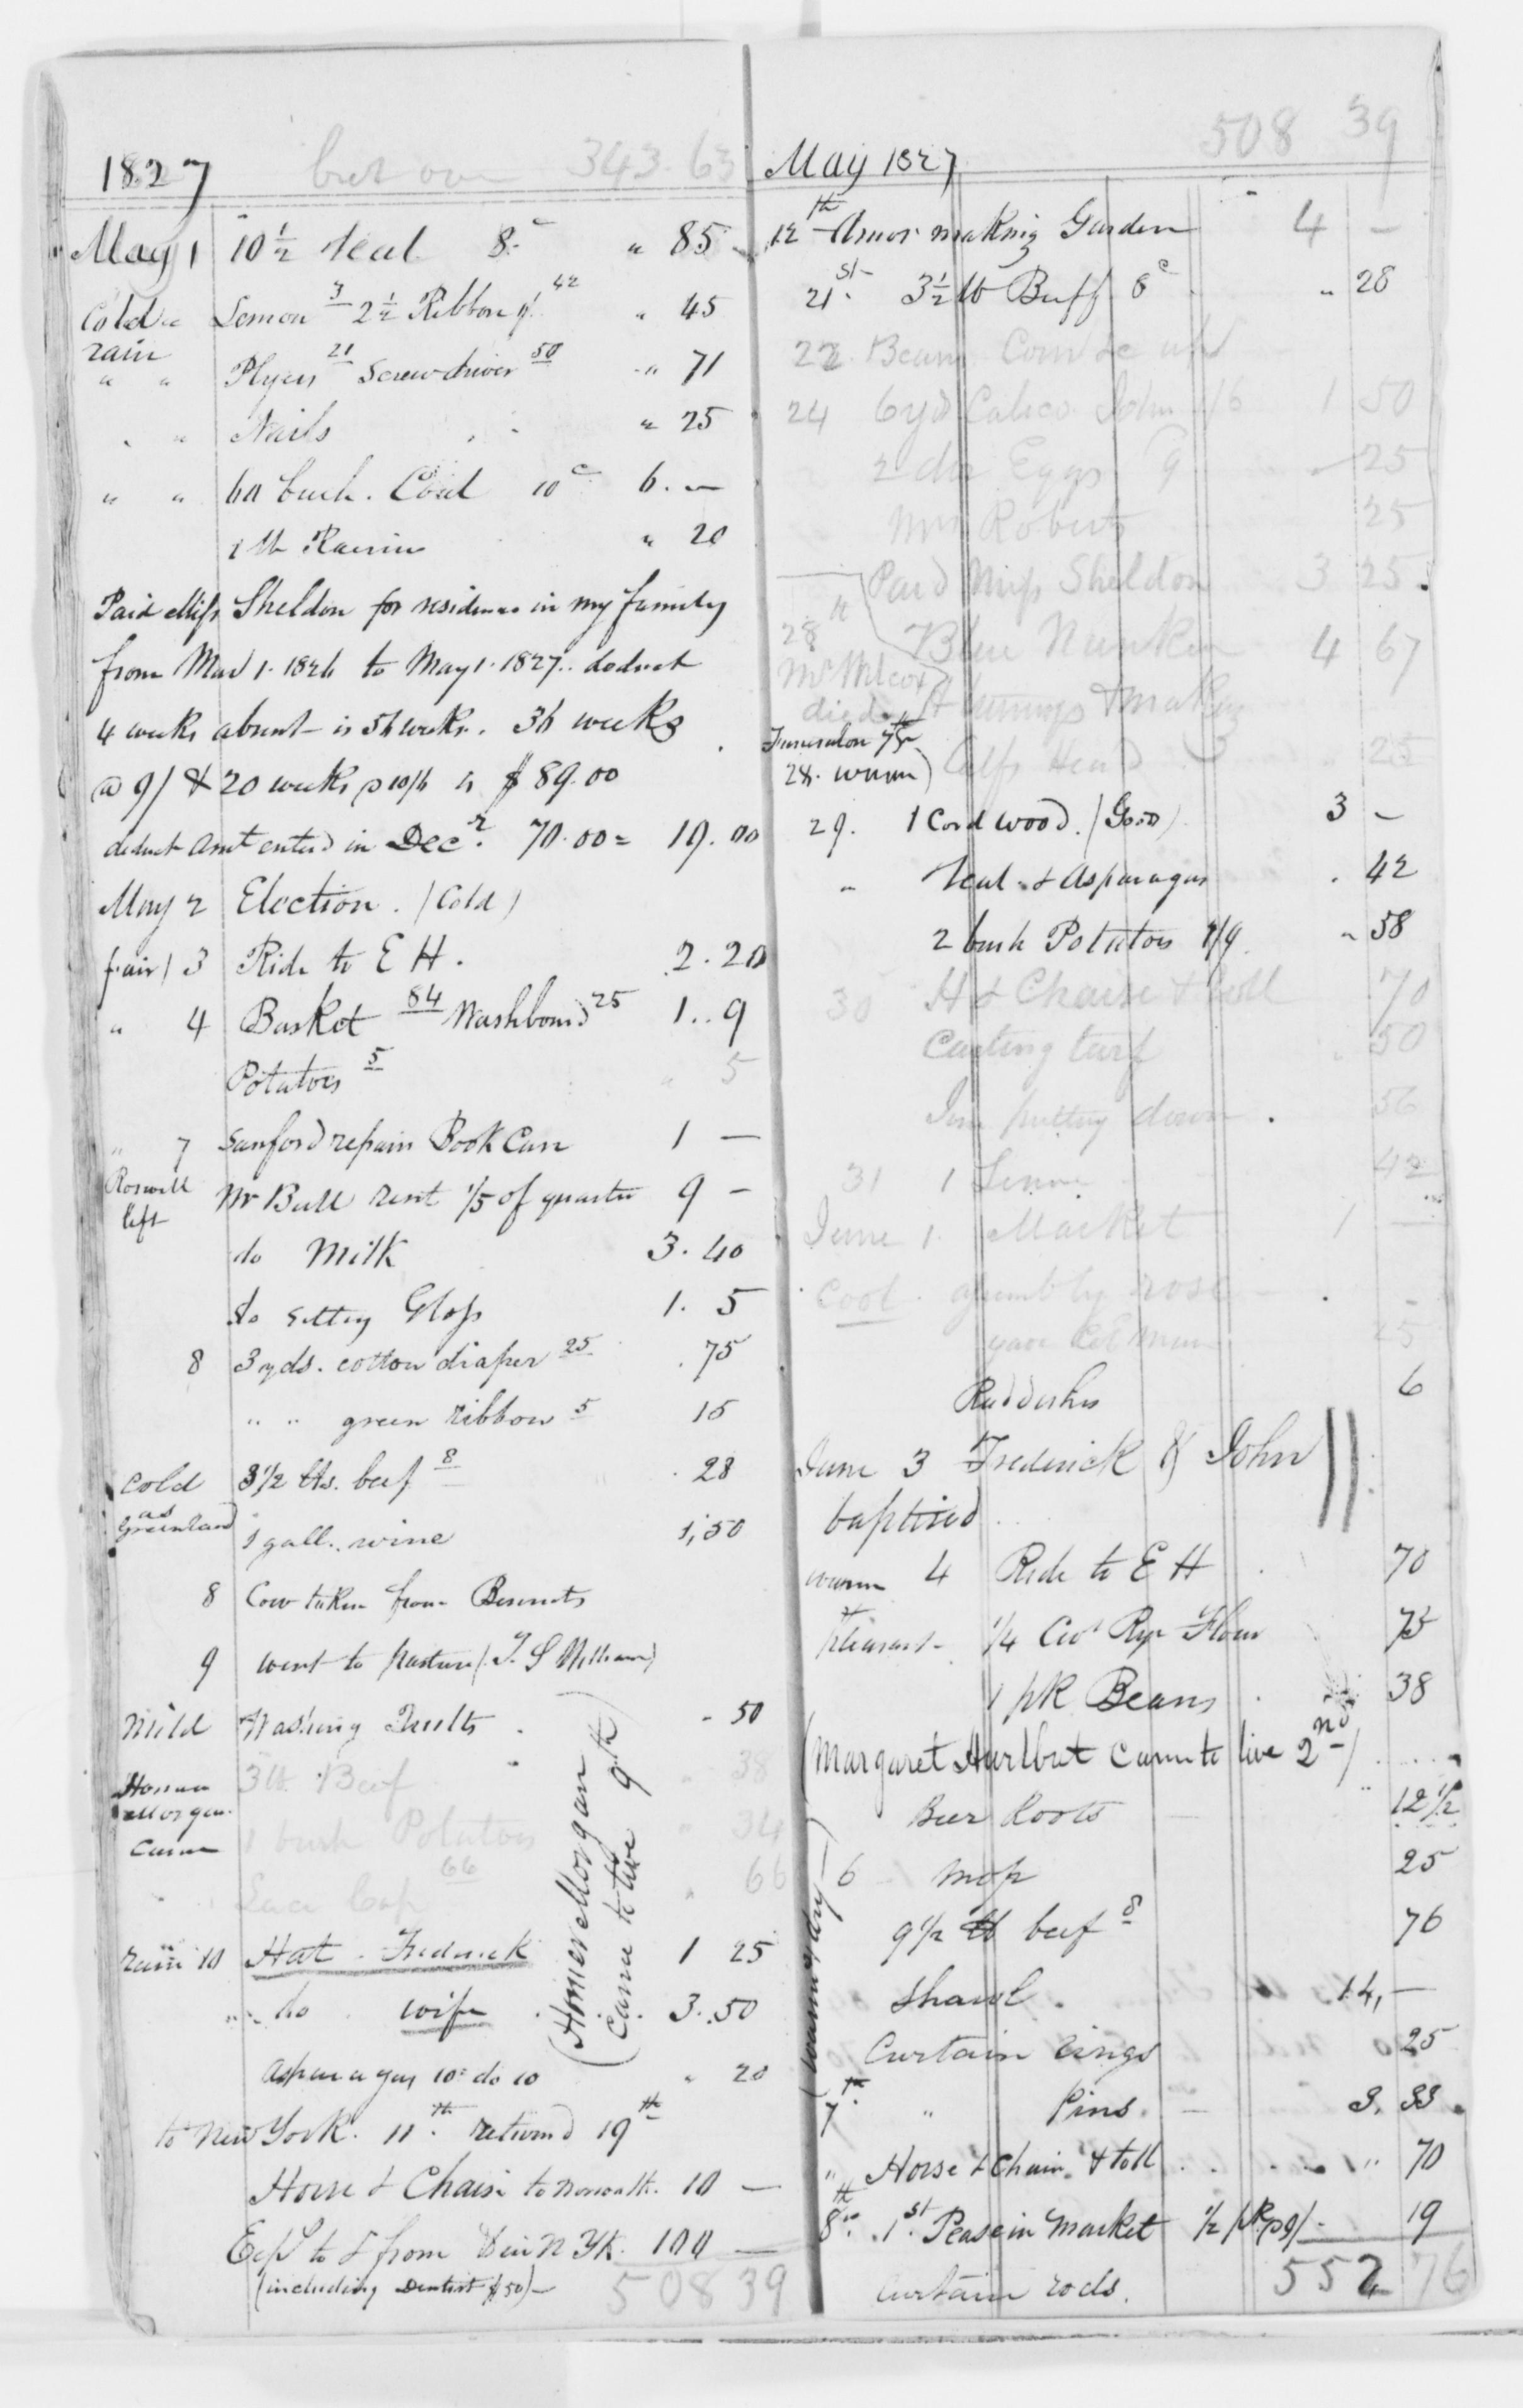 1827 343.63
May 1 10 1/2 Veal 8c " 85
Cold " Lemon 3 2 1/2 Ribbon 42 " 45
rain
" " Plyers 21 Screw driver 50 " 71
" " Nails " 25
" " 60 bush. Coal 10c 6. —
1 lb Raisins " 20
Paid Miss Sheldon for residence in my family
from Mar 1. 1826 to May 1. 1827. deduct
4 weeks absent is 56 weeks. 36 weeks
@ 9/ & 20 weeks @ 10/6 is $ 89.00
deduct amt entered in Decr. 70.00 = 19.00
May 2 Election. (Cold)
fair) 3 Ride to E H. 2.20
" 4 Basket 84 Washboard 25 1..9
Potatoes 5 " 5
" 7 Sanford repairs Book Case 1 —
Roswell left
Mr Bull rent 1/5 of quarter 9 —
do Milk 3.40
do setting Glass 1. 5
8 3 yds. cotton diaper 25 .75
" " green ribbon 5 15
cold as Greenland
3 1/2 lbs. beef 8 .28
1 gall. wine 1,50
8 Cow taken from Bennets
9 went to pasture (T. S Williams)
mild Washing Quilts - 50
Homer Morgan came
3 lb. Beef " 38
1 bush Potatoes " 34
Lace Cap 66 " 66
(Homer Morgan came to live 9th)
rain 10 Hat - Frederick 1 25
" do wife 3.50
Asparagus 10c do 10 " 20
to New York. 11th returned 19th
Horse & Chaise to Norwalk. 10 —
Exps to & from & in N Yk. 100 —
(including Dentist $50) —
508 39
May 1827 508 39
12th Amos making Garden 4 —
21st 3 1/2 lb Beef 8c " 28
22. Beans Corn &c up
24 6 yd Calico John 1/6 1 50
2 doz Eggs 9 25
Mrs Roberts 25
Paid Miss Sheldon 3 25
28th Blue Nankin 4 67
Mr Wilcox died
trimmings & making
Funeral on 7th
Calfs Head 25
28. warm)
29. 1 Cord wood. (Good) 3 —
" Veal & Asparagus . 42
2 bush Potatoes 1/9 " 58
30 H & Chaise & toll 70
Carting turf 50
putting down 56
31 42
June 1. Market 1 —
Cool.
25
Raddishes 6
June 3 Frederick & John
baptised
warm 4 Ride to E H 70
pleasant 1/4 Cwt Rye Flour 75
1 pk Beans 38
(Margaret Hurlbut came to live 2nd)
Beer Roots 12 1/2
6 Mop 25
(warm & dry)
9 1/2 lb beef 8 76
Shawl. 14, —
Curtain rings 25
7th " Pins. 3. 33
" Horse & Chaise & toll " 70
8th. 1st. Pease in market 1/2 pk @ 9/- 19
Curtain rods. 552 76